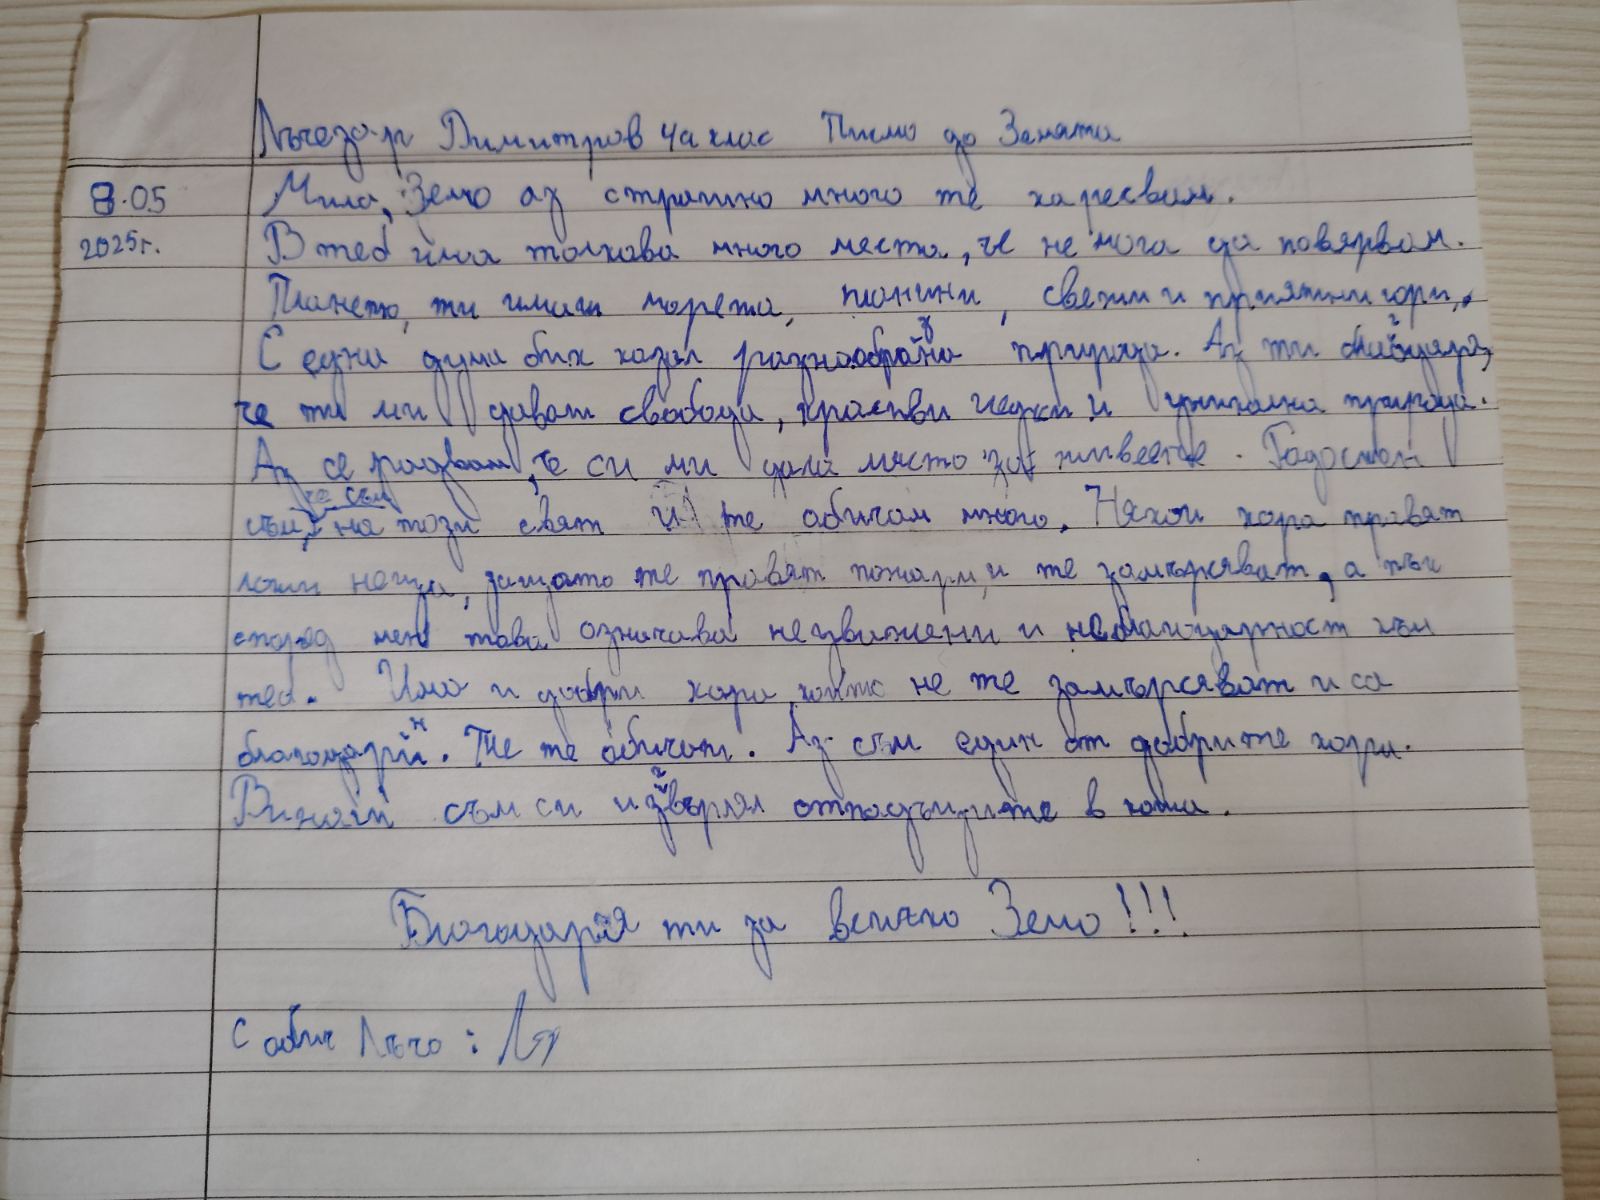 Лъчезар Димитров 4а клас Писмо до Земята
8.05 Мила, Земо аз страшно много те харесвам.
2025г. В теб има толкова много места, че не мога да повярвам.
Плането, ти имаш морета, планини, свежи и приятни гори,.
С една дума бих казал разнообразна природа. Аз ти благодаря,
че ти ми даваш свобода, красиви гледки и уникална природа.
Аз се радвам, че си ми дала място за живеене. Гадостен
съм, че съм на този свят и те обичам много. Някои хора правят
лоши неща, защото те правят пожари, и те замърсяват, а пък
според мен това означава неуважени и неблагодарност към
теб. Има и добри хора които не те замърсяват и са
благодарни. Те те обичат. Аз съм един от добрите хора.
Винаги съм си изхвърлял отпадъците в коша.
Благодаря ти за всичко Земо!!!
С обич Лъчо: